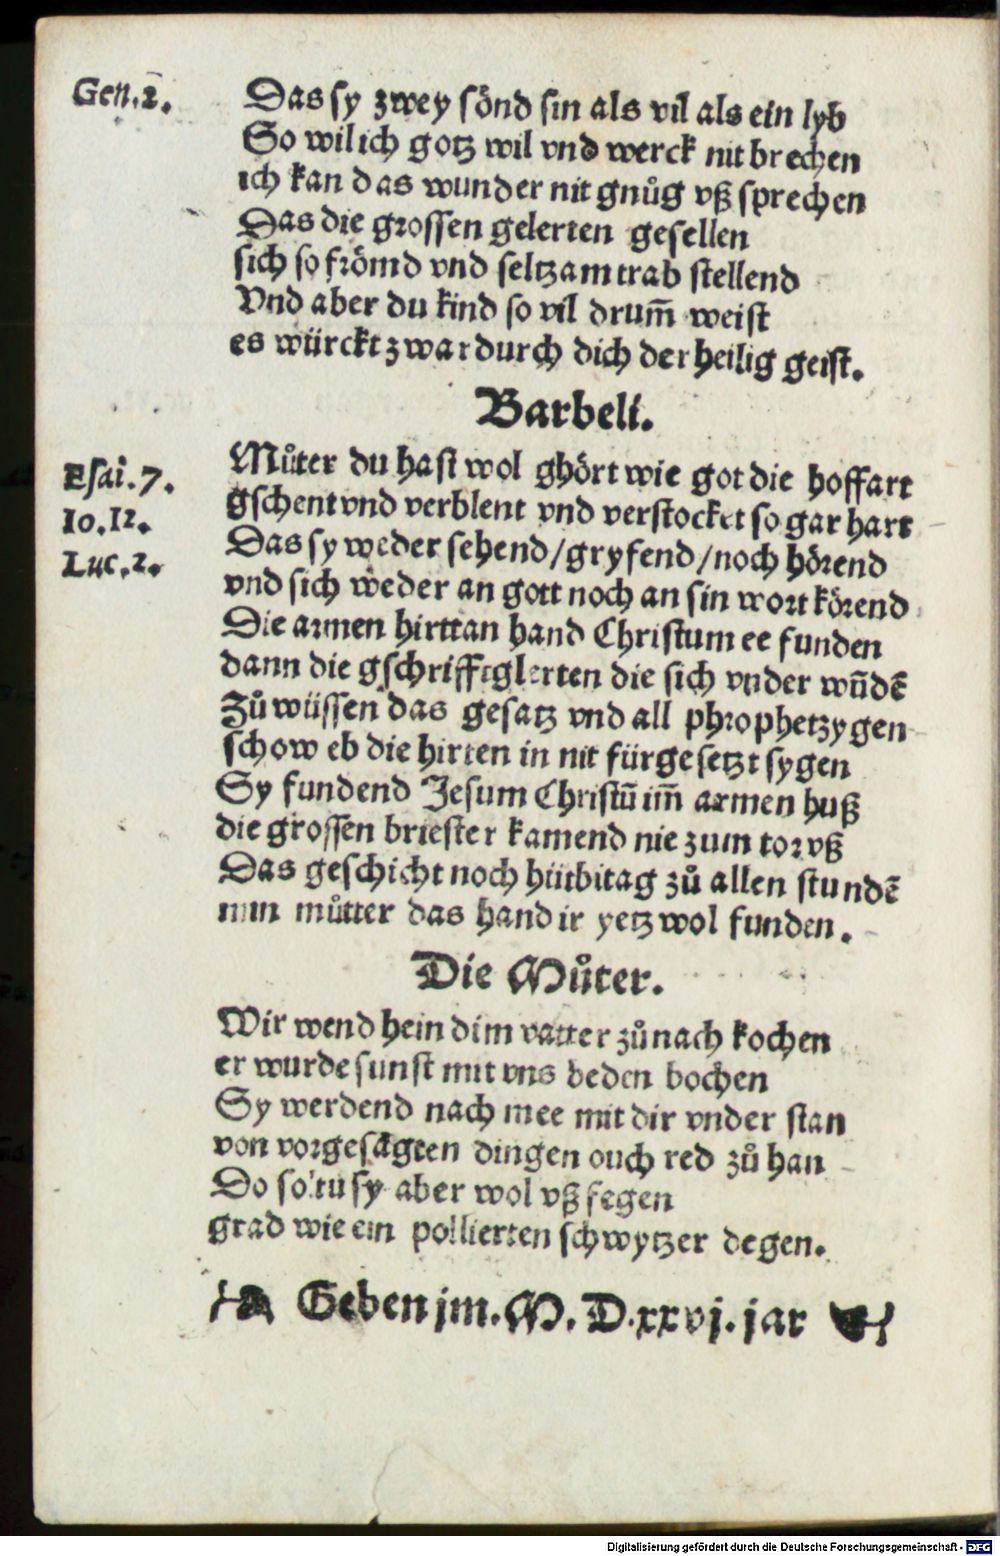 Gen.2.
Das sy zwey sönd sin als vil als ein lyb
So wil ich gotz wil vnd werck nit brechen
ich kan das wunder nit gnůg vß sprechen
Das die grossen gelerten gesellen
sich so frömd vnd seltzam trab stellend
Vnd aber du kind so vil drum̄ weist
es würckt zwar durch dich der heilig geist.
Barbeli.
Esai.7.
Io.12.
Luc.2.
Můter du hast wol ghört wie got die hoffart
gschent vnd verblent vnd verstocket so gar hart
Das sy weder sehend/gryfend/noch hörend
vnd sich weder an gott noch an sin wort körend
Die armen hirttan hand Christum ee funden
dann die gschrifftglerten die sich vnder wūdē
Zů wüssen das gesatz vnd all phrophetzygen
schow eb die hirten in nit fürgesetzt sygen
Sy fundend Jesum Christū im̄ armen huß
die grossen briester kamend nie zum tor vß
Das geschicht noch hütbitag zů allen stundē
min můtter das hand ir yetz wol funden.
Die Můter.
Wir wend hein dim vatter zů nach kochen
er wurde sunst mit vns beden bochen
Sy werdend nach mee mit dir vnder stan
von vorgesagten dingen ouch red zů han
Do soltu sy aber wol vß fegen
grad wie ein pollierten schwytzer degen.
Geben jm.M.D.xxvj.jar
Digitalisierung gefördert durch die Deutsche Forschungsgemeinschaft - DFG